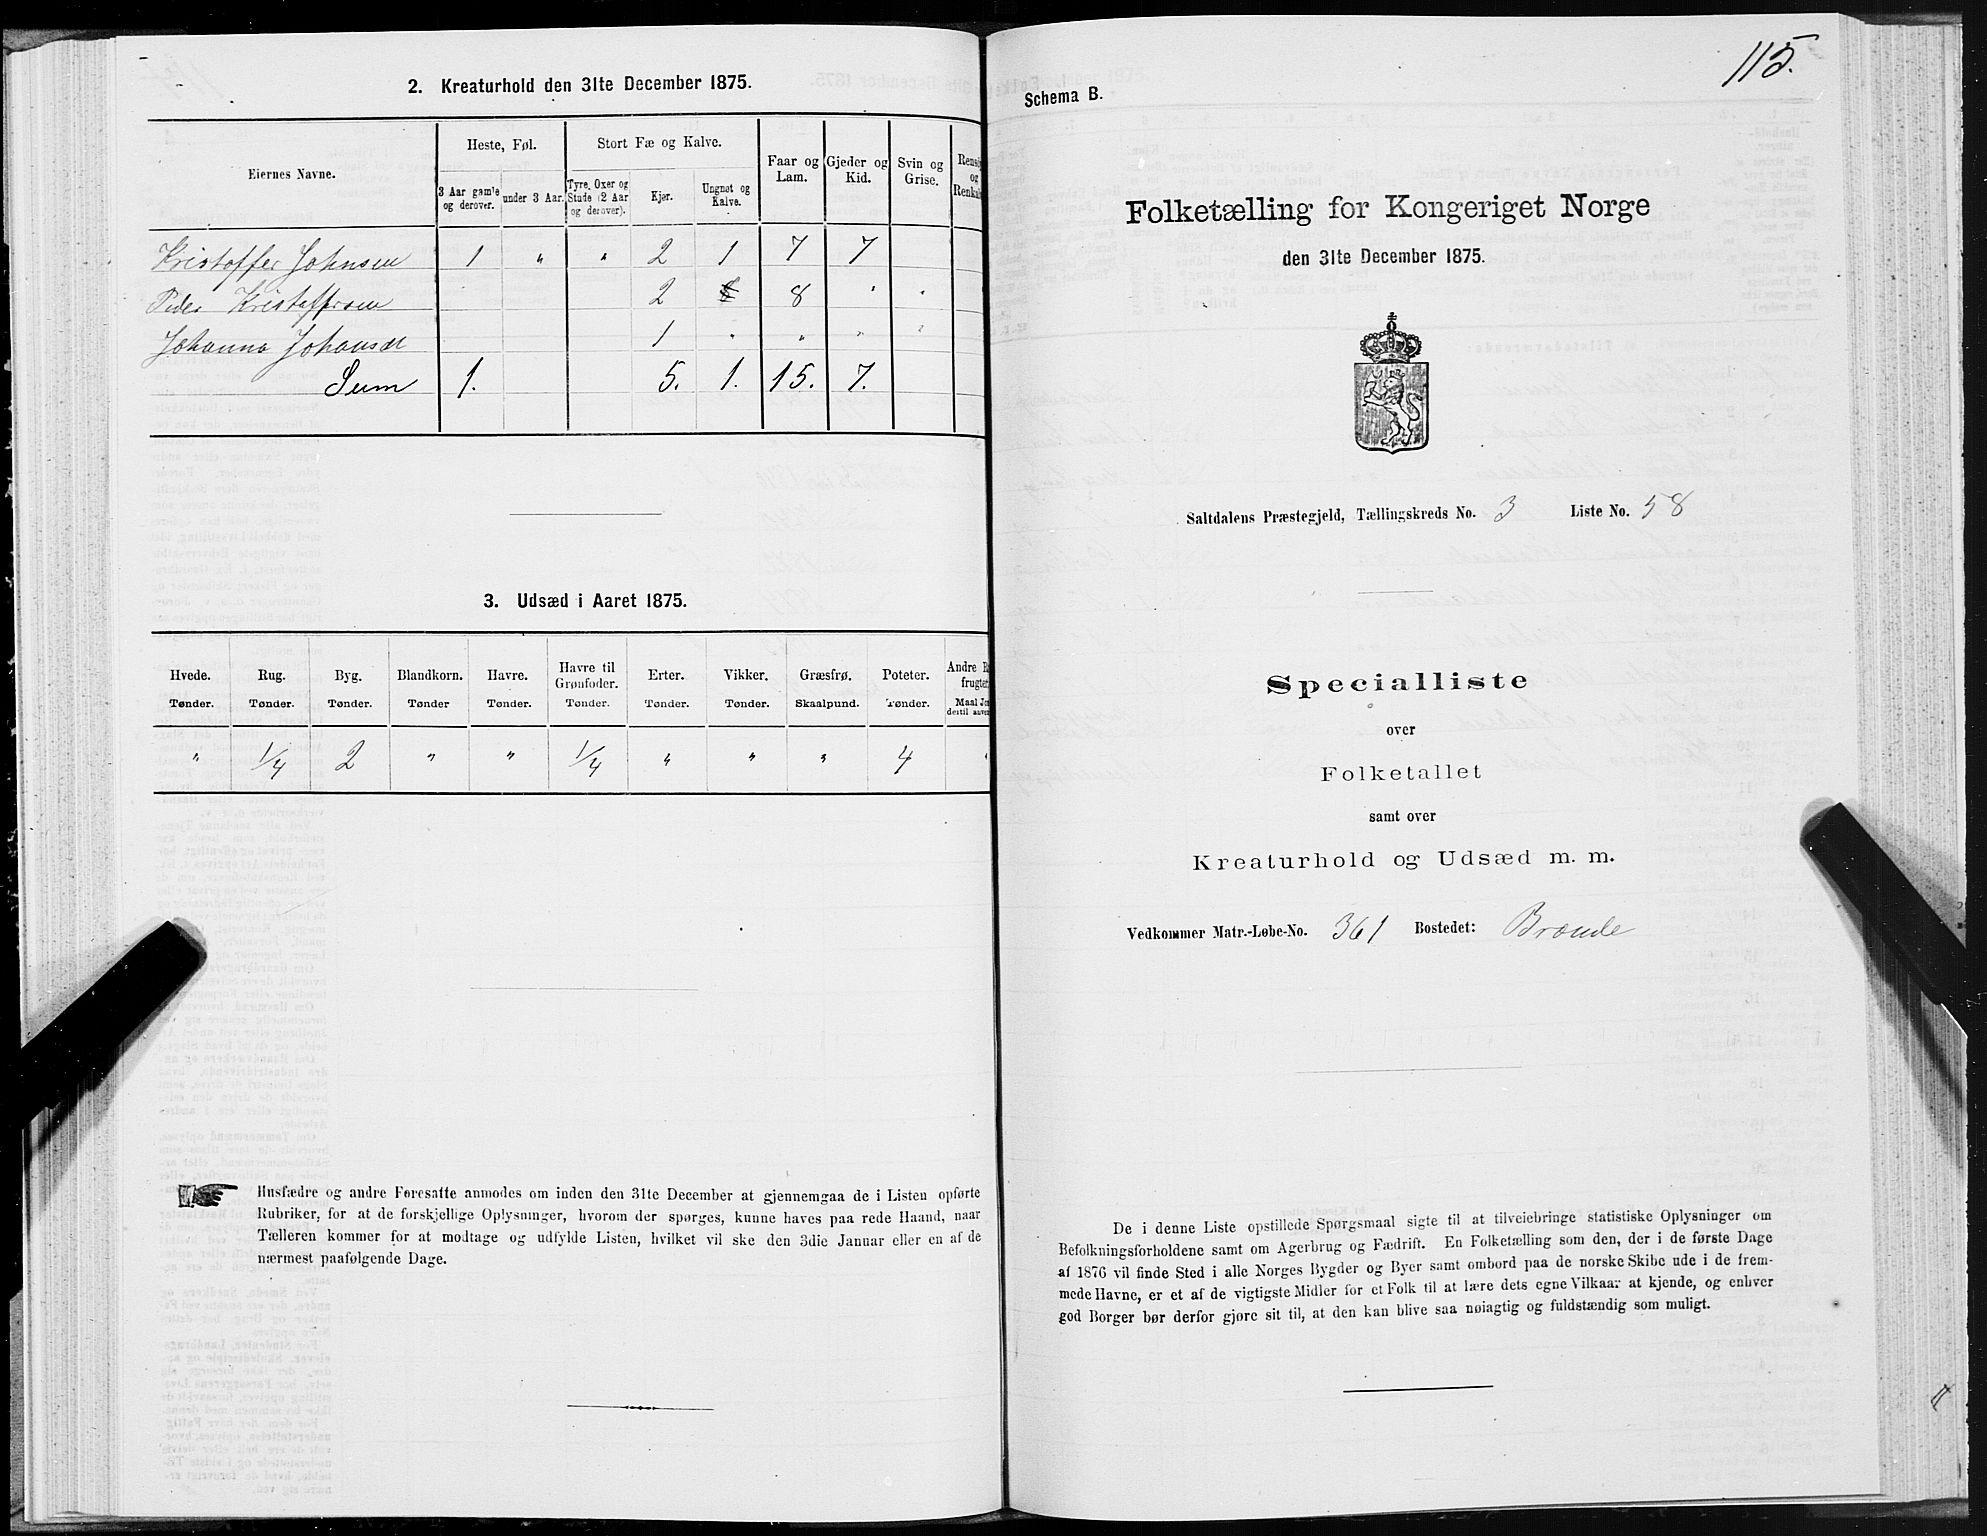 2. Kreaturhold den 31te December 1875.
Eiernes Navne.
Heste, Føl.
Stort Fæ og Kalve.
Faar og Lam.
Gjeder og Kid.
Svin og Grise.
og
3 Aar gamle og derover.
under 3 Aar.
Tyre, Oxer og Stude (2 Aar og derover).
Kjør.
Ungnøt og Kalve.
Kristoffer Johnsen 1 " " 2 1 7 7
Peder Kristoffersen 2 8 " "
Johanna Johansdt 1 " " " "
Sum 1. 5. 1. 15. 7.
3. Udsæd i Aaret 1875.
Hvede. Rug. Byg. Blandkorn. Havre. Havre til Grønfoder. Erter. Vikker. Græsfrø. Poteter. Andre
Tønder. Tønder. Tønder. Tønder Tønder. Tønder. Tønder. Tønder. Skaalpund. Tønder. Maal
" 1/4 2 " " 1/4 " " " 4 "
Husfædre og andre Foresatte anmodes om inden den 31te December at gjennemgaa de i Listen opførte
Rubriker, for at de forskjellige Oplysninger, hvorom der spørges, kunne haves paa rede Haand, naar
Tælleren kommer for at modtage og udfylde Listen, hvilket vil ske den 3die Januar eller en af de
nærmest paafølgende Dage.
115.
Schema B.
Folketælling for Kongeriget Norge
den 31te December 1875.
Saltdalens Præstegjeld, Tællingskreds No. 3 Liste No. 58
Specialliste
over
Folketallet
samt over
Kreaturhold og Udsæd m. m.
Vedkommer Matr.-Løbe-No. 361 Bostedet: Brænde
De i denne Liste opstillede Spørgsmaal sigte til at tilveiebringe statistiske Oplysninger om
Befolkningsforholdene samt om Agerbrug og Fædrift. En Folketælling som den, der i de første Dage
af 1876 vil finde Sted i alle Norges Bygder og Byer samt ombord paa de norske Skibe ude i de frem-
mede Havne, er et af de vigtigste Midler for et Folk til at lære dets egne Vilkaar at kjende, og enhver
god Borger bør derfor gjøre sit til, at den kan blive saa nøiagtig og fuldstændig som muligt.